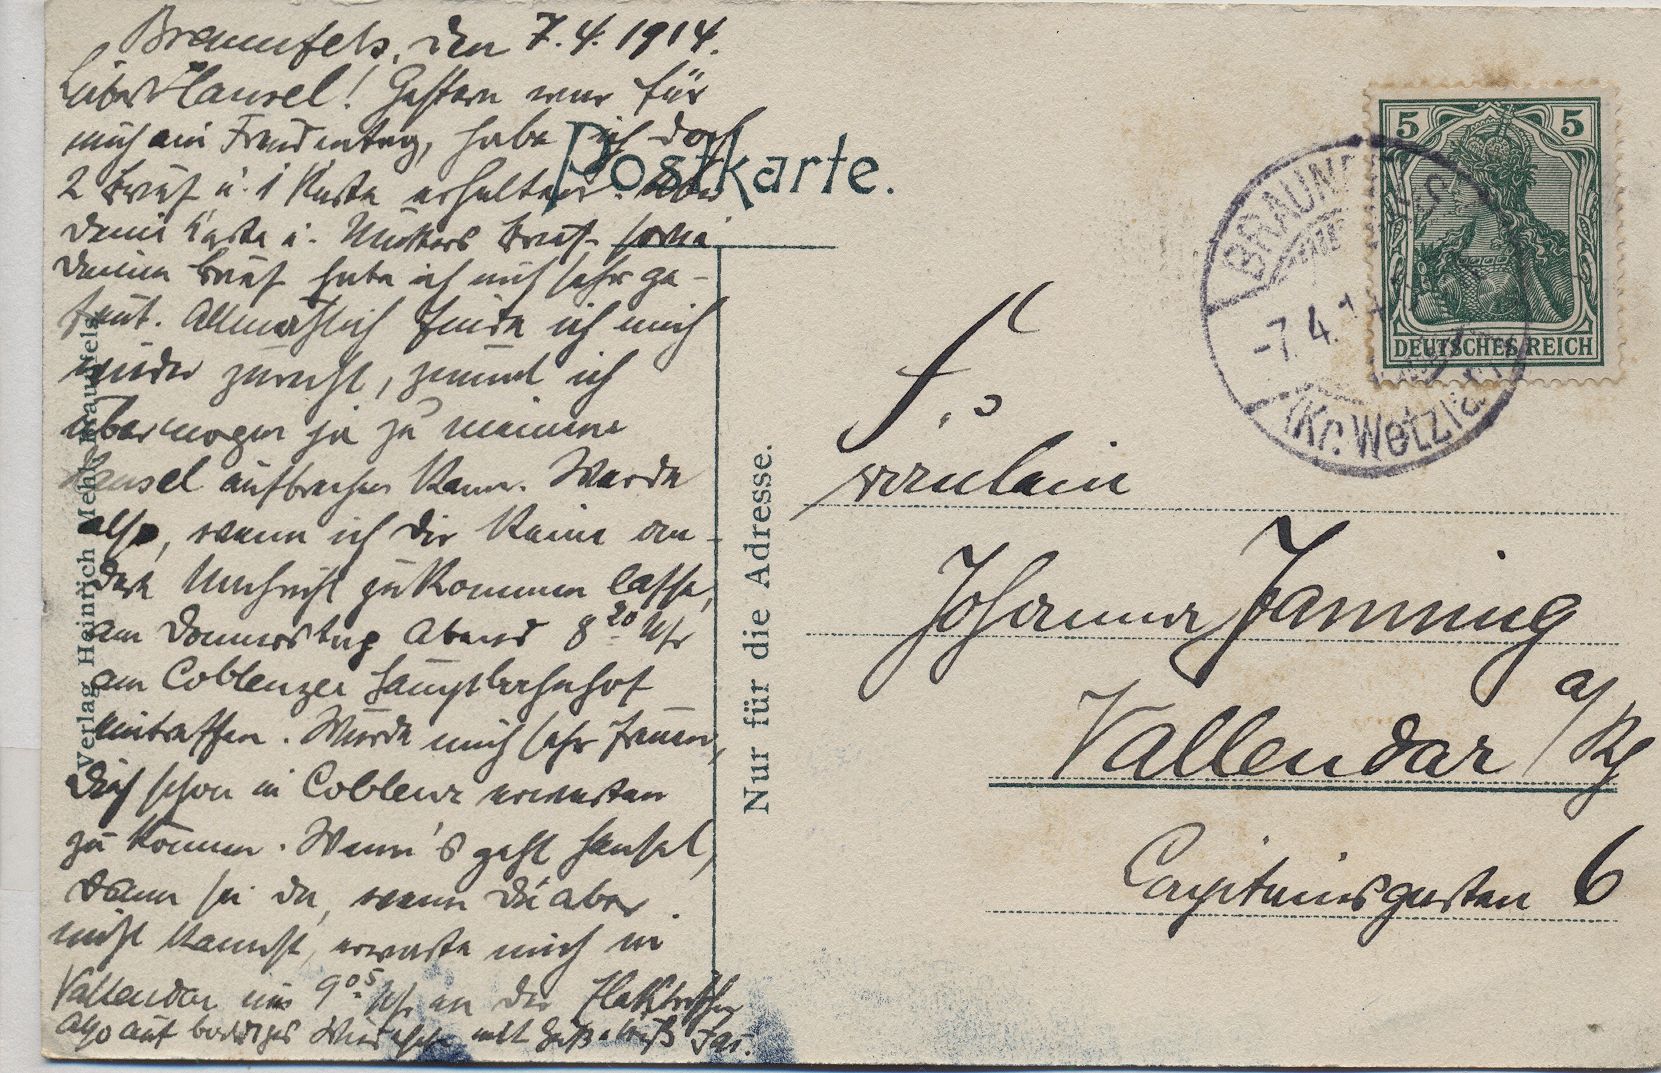 Braunfels, den 7.4.1914.
Liebes Hansel! Gestern war für
mich ein Freudentag, habe ich doch
2 Brief u. 1 Karte erhalten. Über
deine Karte u. Mutters Brief sowie
deinen Brief habe ich mich sehr ge-
freut. Allmählich finde ich mich
wieder zurecht, zumal ich
übermorgen ja zu meinem
Hansel aufbrechen kann. Werde
also, wenn ich dir keine an-
dere Nachricht zukommen lasse,
am Donnerstag Abend 8 20 Uhr
am Coblenzer Hauptbahnhof
eintreffen. Würde mich sehr freuen,
Dich schon in Coblenz erwarten
zu können. Wenn's geht Hansel,
dann sei da, wenn Du aber
nicht kannst, erwarte mich in
Vallendar um 9 05 Uhr an der
also auf baldiges Wiedersehen mit Gruß u. Kuß
Postkarte.
Verlag Heinrich Mehl, Braunfels
Nur für die Adresse.
5 5
DEUTSCHES REICH
BRAUNFELS
-7.4.14
(Kr. Wetzlar)
Fräulein
Johanna Janning
Vallendar a/Rh
Capitainsgarten 6